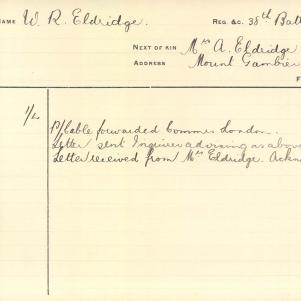 NAME W. R. Eldridge. REG. &c. 38th Batt
NEXT OF KIN Mrs A. Eldridge
ADDRESS Mount Gambier
F
1/- P/Cable forwarded Commrs London.
Letter sent Inquirer advising as above
Letter received from Mrs Eldridge. Ackn